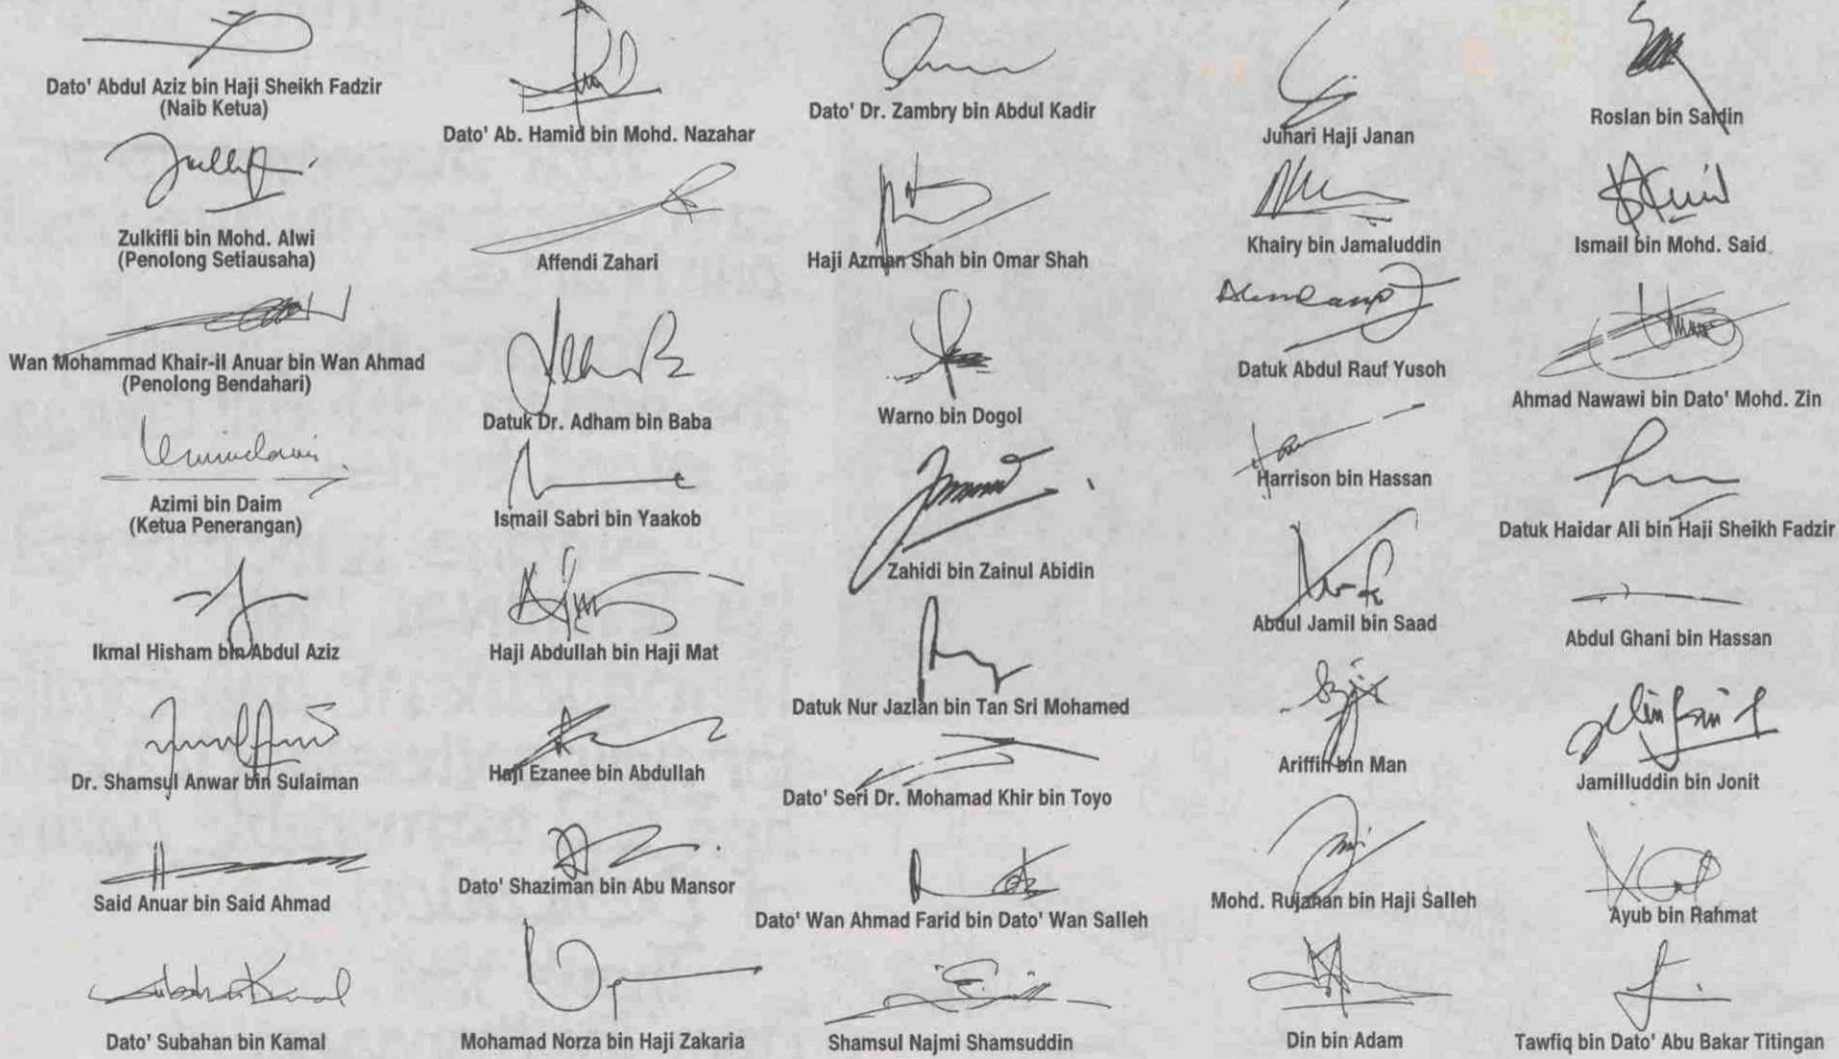 Dato' Abdul Aziz bin Haji Sheikh Fadzir
(Naib Ketua)
Zulkifli bin Mohd. Alwi
(Penolong Setiausaha)
Wan Mohammad Khair-il Anuar bin Wan Ahmad
(Penolong Bendahari)
Azimi bin Daim
(Ketua Penerangan)
Ikmal Hisham bin Abdul Aziz
Dr. Shamsul Anwar bin Sulaiman
Said Anuar bin Said Ahmad
Dato' Subahan bin Kamal
Dato' Ab. Hamid bin Mohd. Nazahar
Affendi Zahari
Datuk Dr. Adham bin Baba
Ismail Sabri bin Yaakob
Haji Abdullah bin Haji Mat
Haji Ezanee bin Abdullah
Dato' Shaziman bin Abu Mansor
Mohamad Norza bin Haji Zakaria
Dato' Dr. Zambry bin Abdul Kadir
Haji Azman Shah bin Omar Shah
Warno bin Dogol
Zahidi bin Zainul Abidin
Datuk Nur Jazlan bin Tan Sri Mohamed
Dato' Seri Dr. Mohamad Khir bin Toyo
Dato' Wan Ahmad Farid bin Dato' Wan Salleh
Shamsul Najmi Shamsuddin
Juhari Haji Janan
Khairy bin Jamaluddin
Datuk Abdul Rauf Yusoh
Harrison bin Hassan
Abdul Jamil bin Saad
Ariffin bin Man
Mohd. Rujahan bin Haji Salleh
Din bin Adam
Roslan bin Sardin
Ismail bin Mohd. Said
Ahmad Nawawi bin Dato' Mohd. Zin
Datuk Haidar Ali bin Haji Sheikh Fadzir
Abdul Ghani bin Hassan
Jamilluddin bin Jonit
Ayub bin Rahmat
Tawfiq bin Dato' Abu Bakar Titingan